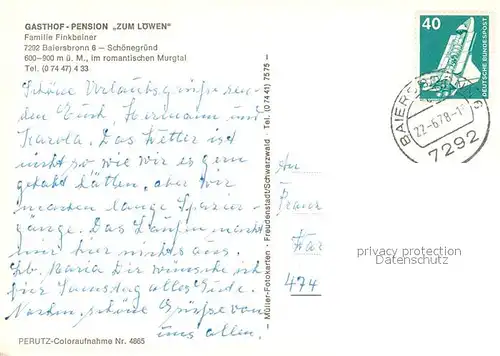 GASTHOF - PENSION „ZUM LÖWEN"
Familie Finkbeiner
7292 Baiersbronn 6 — Schönegründ
600—900 m ü. M., im romantischen Murgtal
Tel. (0 74 47) 4 33
Schöne Urlaubsgrüße sen-
den Euch, Hermann und
Karola. Das Wetter ist
nicht so wie wir es gern
gehabt hätten, aber wir
machen lange Spazier-
gänge. Das Laufen macht
mir hier nichts aus.
Lb. Maria Dir wünsche ich
für Samstag alles Gute.
Nochm. schöne Grüße von
uns allen.
PERUTZ-Coloraufnahme Nr. 4865
Müller-Fotokarten · Freudenstadt/Schwarzwald · Tel. (0 74 41) 7575
An
474
40
DEUTSCHE BUNDESPOST
22.-6.78-1
7292
privacy protection
Datenschutz